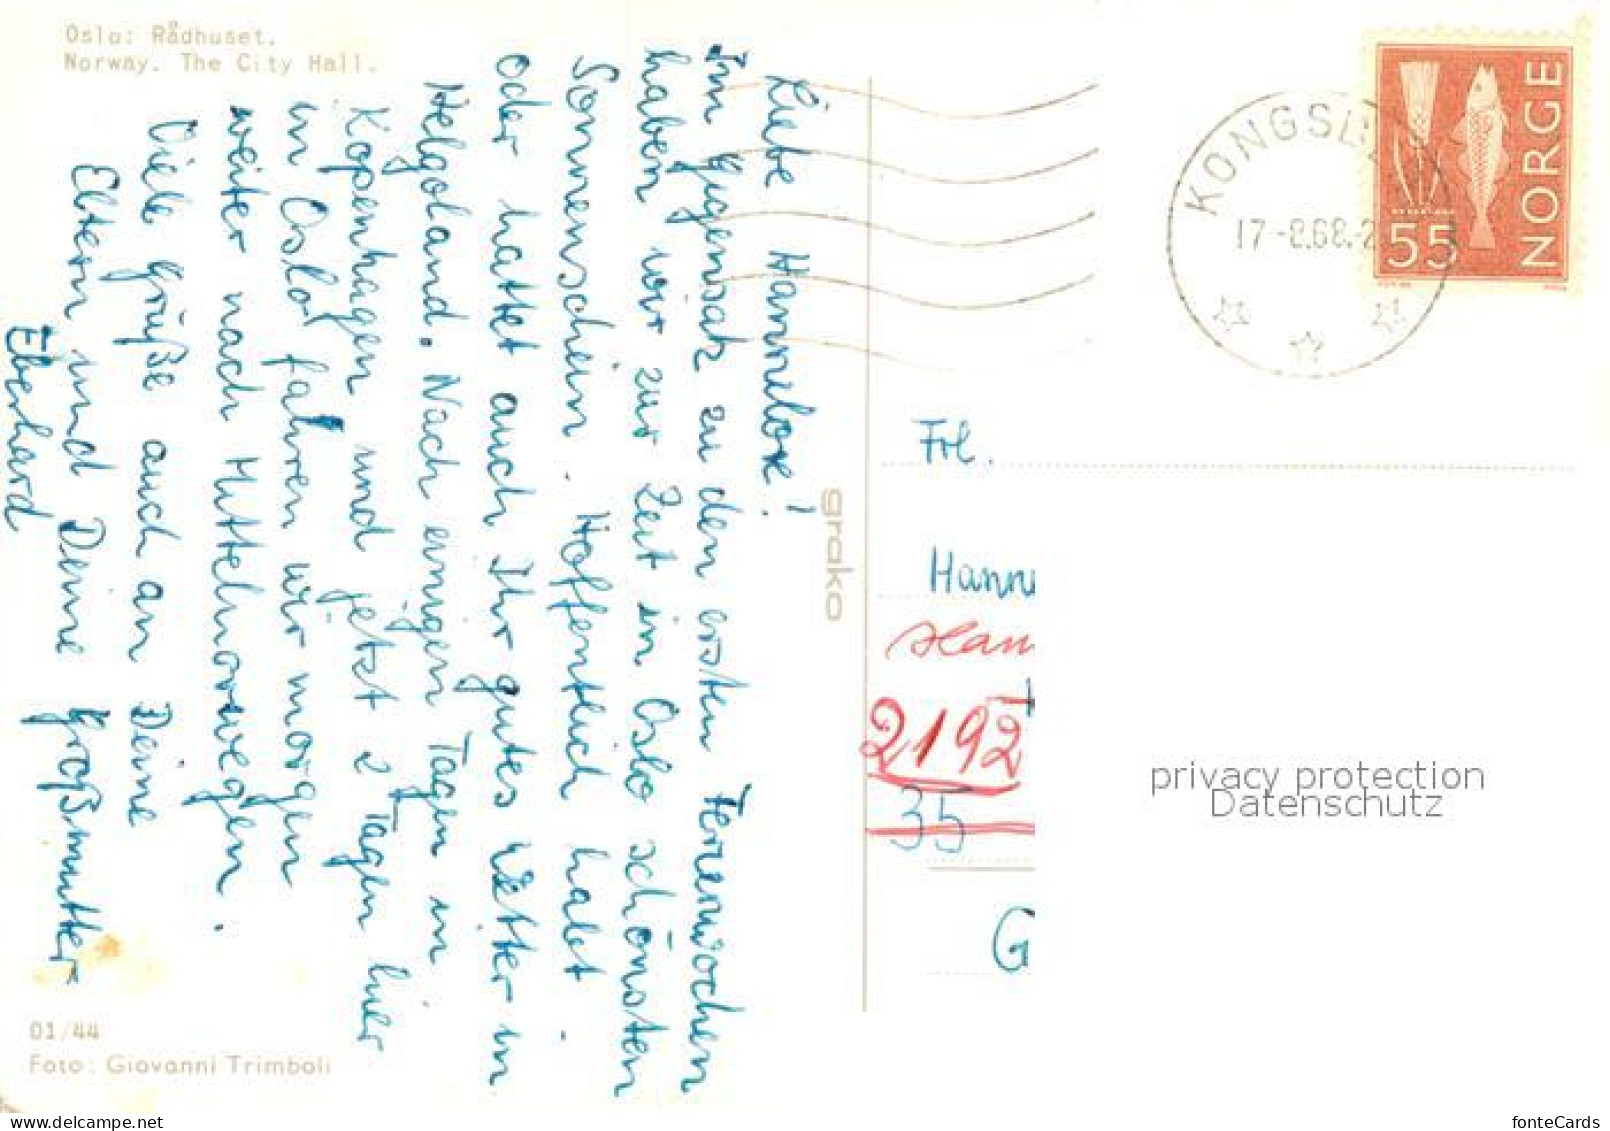 Oslo: Rådhuset.
Norway. The City Hall.
Liebe Hannelore!
Im Gegensatz zu den ersten Ferienwochen
haben wir zur Zeit in Oslo schönsten
Sonnenschein. Hoffentlich habt
oder hattet auch Ihr gutes Wetter in
Helgoland. Nach einigen Tagen in
Kopenhagen und jetzt 2 Tagen hier
in Oslo fahren wir morgen
weiter nach Mittelnorwegen.
Viele Grüße auch an Deine
Eltern und Deine Großmutter
Eberhard
01/44
Foto: Giovanni Trimboli
grako
NORGE
55
17-8.68.-2
Frl.
Hann
Han
2192
35
G
privacy protection
Datenschutz
www.delcampe.net
fonteCards